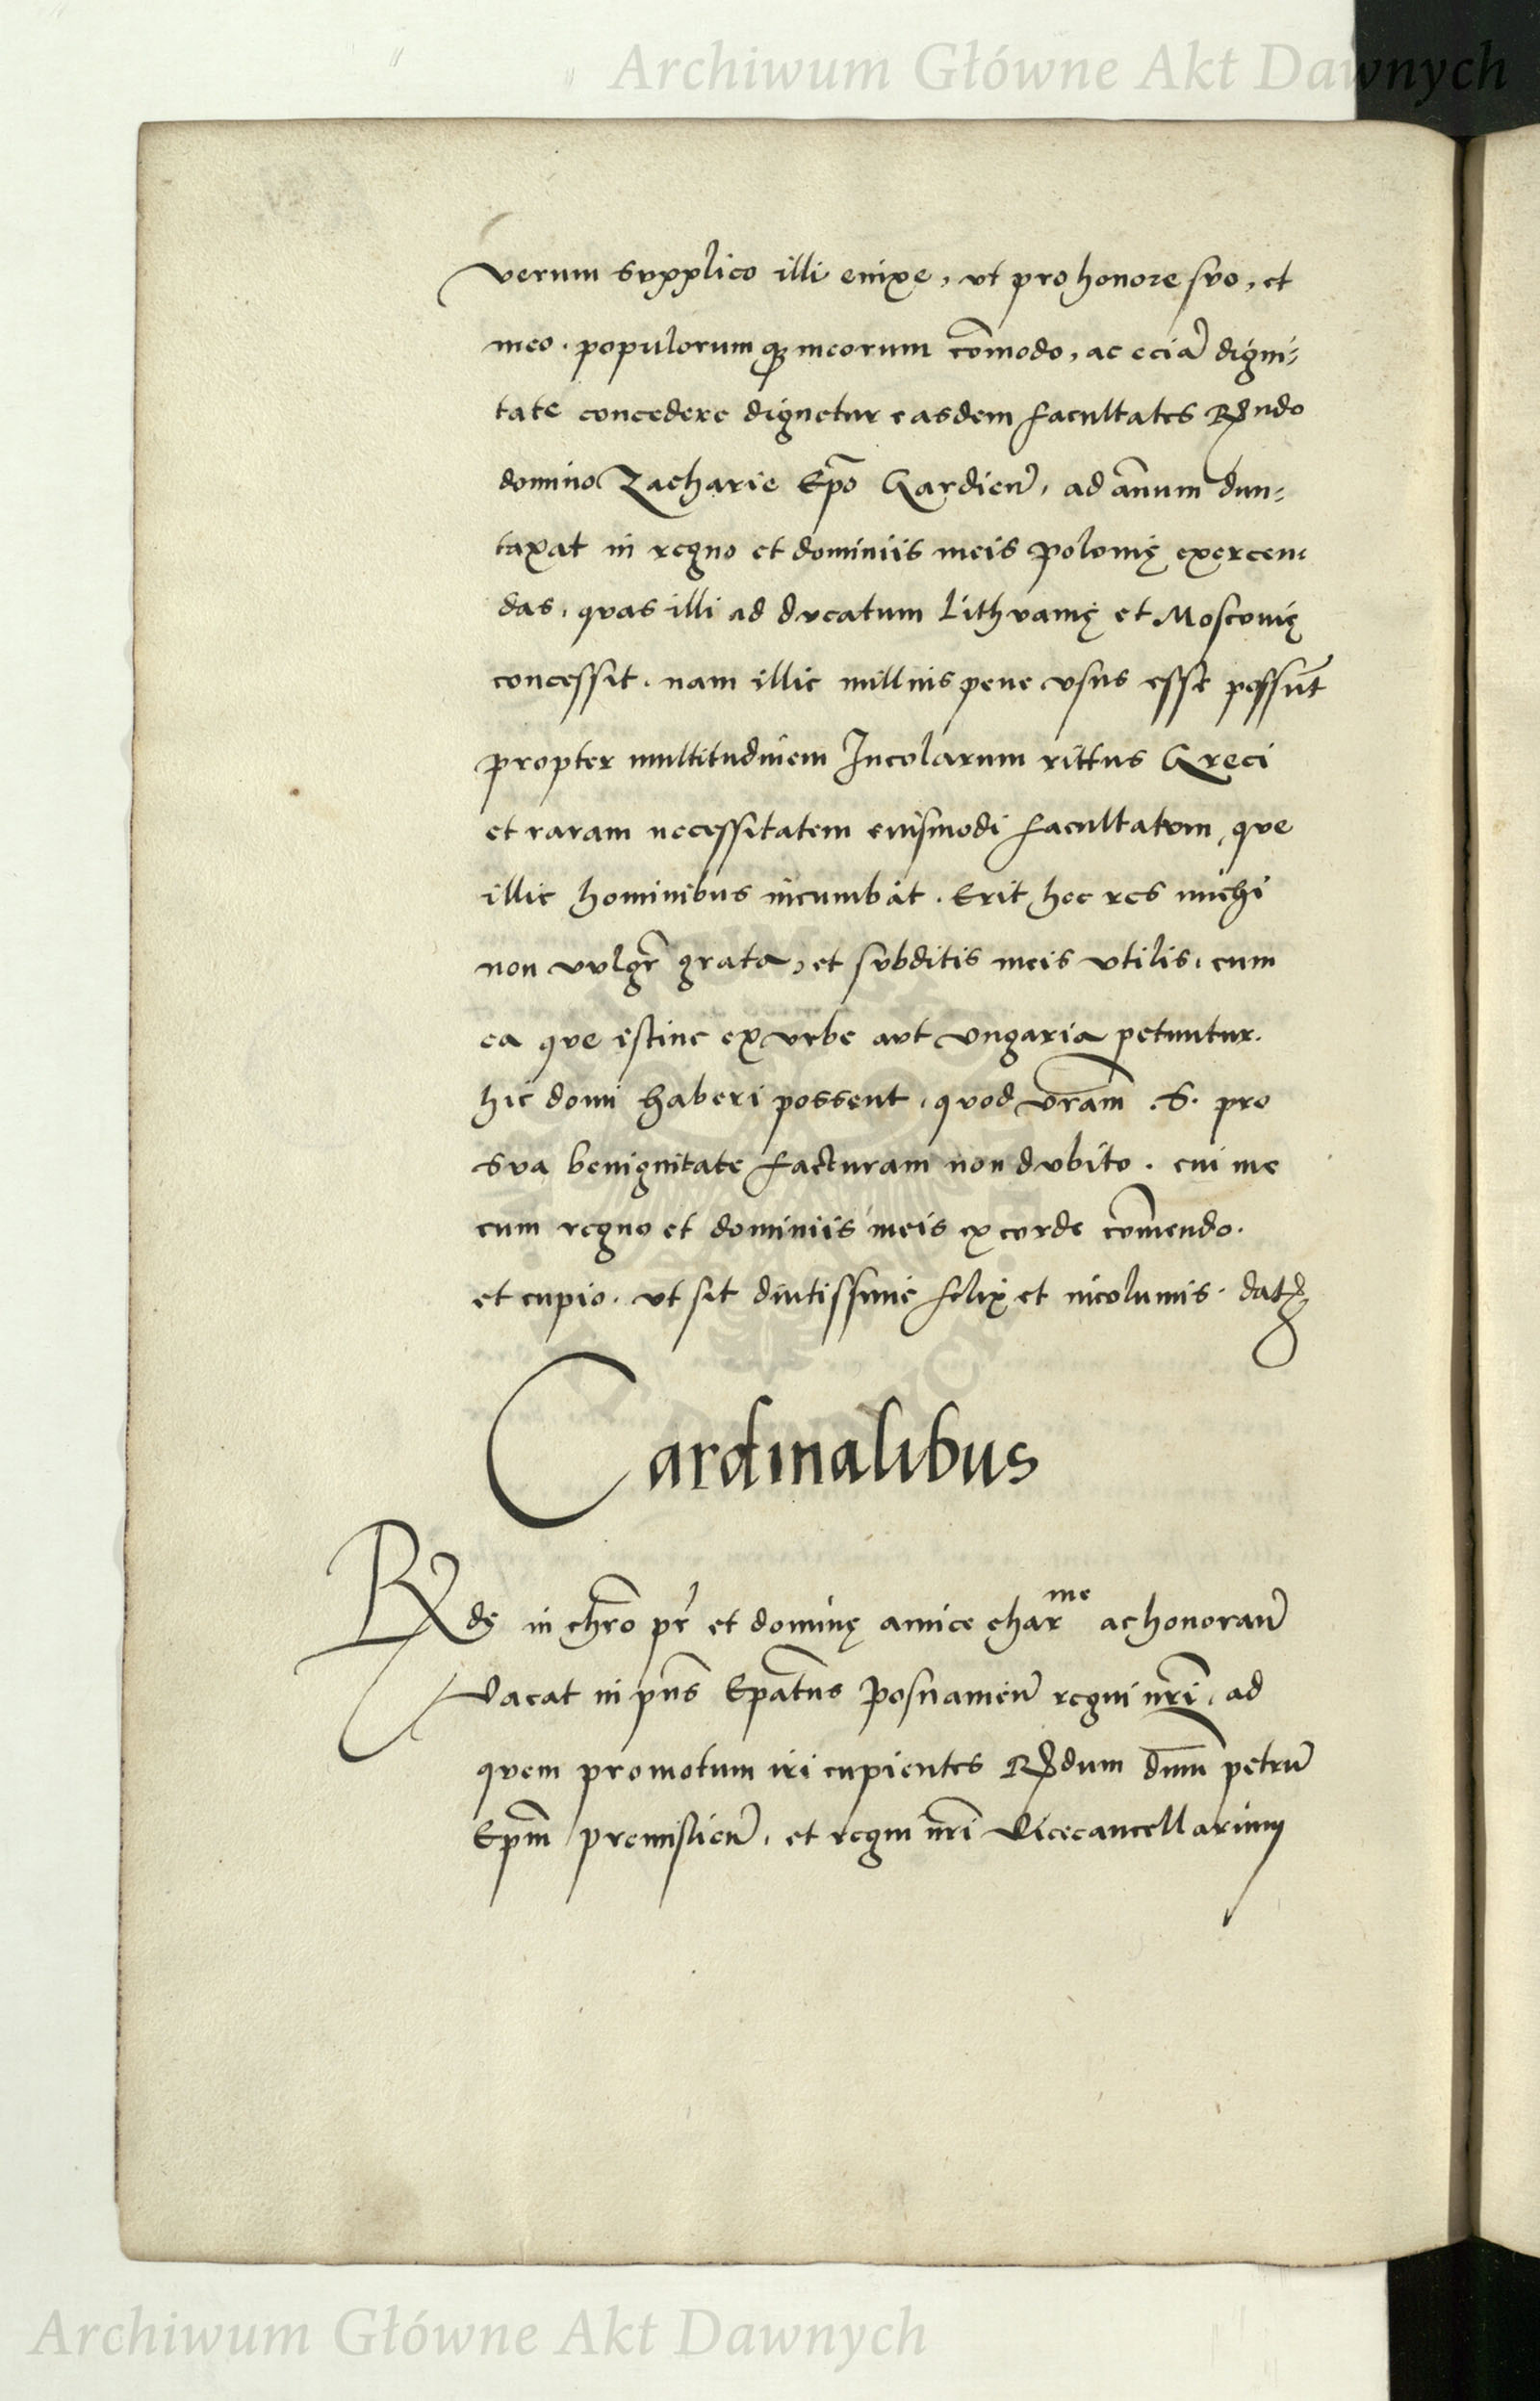 Archiwum Główne Akt Dawnych
verum supplico illi enixe, ut pro honore suo, et
meo. populorum qʒ meorum com̄odo, ac eciā digni-
tate concedere dignetur easdem facultates Rndo
domino Zacharie Ep̄o Gardien̄, ad an̄um dun-
taxat in regno et dominiis meis polonię exercen-
das, quas illi ad ducatum Lithuanię et Mosconię
concessit. nam illic nullius pene usus esse possūt
propter multitudinem Incolarum rittus Greci
et raram necessitatem eiusmodi facultatem, que
illic hominibus incumbāt. Erit hec res michi
non vulgr̄ grata, et subditis meis utilis, cum
ea que istinc ex urbe aut Ungaria petuntur.
hic domi haberi possent, quod vram̄ .S. pro
sua benignitate facturam non dubito. cui me
cum regno et dominiis meis ex corde com̄endo.
et cupio. ut sit diutissime felix et incolumis. dat
Cardinalibus
Rdę in chr̄o pr̄ et dominę amice charme ac honoran̄
Vacat in pn̄s Epat̄us Posnanien̄ regni nr̄i, ad
quem promotum iri cupientes Rdum dn̄m petrū
Ep̄m premislien̄, et regni nr̄i Vicecancellarium
Archiwum Główne Akt Dawnych